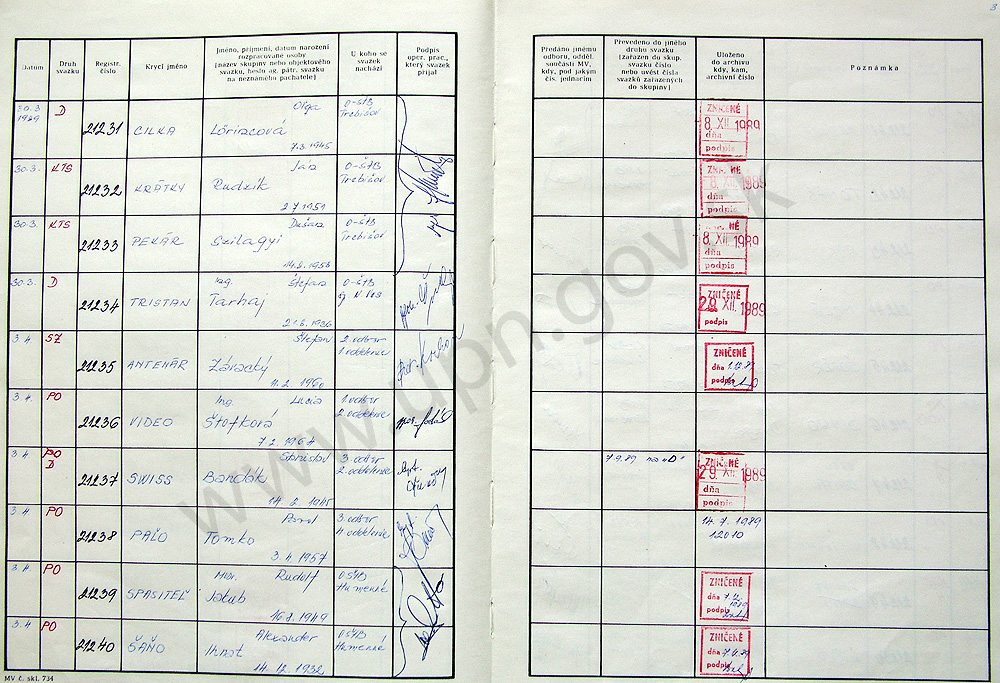 3
Datum
Druh
svazku
Registr.
číslo
Krycí jméno
Jméno, příjmení, datum narození
rozpracované osoby
(název skupiny nebo objektového
svazku, heslo ag. pátr. svazku
na neznámého pachatele)
U koho se
svazek
nachází
Podpis
oper. prac.,
který svazek
přijal
Předáno jinému
odboru, odděl.
součásti MV,
kdy, pod jakým
čís. jednacím
Převedeno do jiného
druhu svazku
(zařazen do skup.
svazku číslo
nebo uvést čísla
svazků zařazených
do skupiny)
Uloženo
do archivu
kdy, kam,
archivní číslo
Poznámka
30.3
1989
D
21231
CILKA
Olga
Lörincová
7.3.1945
O-ŠtB
Trebišov
ZNIČENÉ
8. XII. 1989
dňa
podpis
30.3.
KTS
21232
KRÁTKY
Ján
Rudzik
2.7.1951
O-ŠtB
Trebišov
8. XII. 1989
dňa
podpis
30.3.
KTS
21233
PEKÁR
Dušan
Szilagyi
O-ŠtB
Trebišov
8. XII. 1989
dňa
podpis
30.3.
D
21234
TRISTAN
Ing.
Štefan
Tarhaj
21.6.1936
O-ŠtB
ZNIČENÉ
1989
podpis
3.4.
SZ
21235
ANTENÁR
Štefan
11.2.1960
2. odbor
1. oddelenie
ZNIČENÉ
dňa
podpis
3.4.
PO
21236
VIDEO
Ing.
Lucia
Štofková
7.2.1964
1. odbor
2. oddelenie
3.4.
PO
D
21237
SWISS
Stanislav
Bandák
14.2.1945
3. odbor
2. oddelenie
7.9.89 na „D"
ZNIČENÉ
29. XII. 1989
dňa
podpis
3.4.
PO
21238
PAĽO
Pavol
Tomko
3.4.1957
3. odbor
4. oddelenie
14.7.1989
12010
3.4.
PO
21239
SPASITEĽ
MUDr.
Rudolf
Jakub
16.8.1949
OŠtB
Humenné
ZNIČENÉ
dňa
podpis
3.4
PO
21240
ŠAŇO
Alexander
Ihnat
14.12.1932
OŠtB
Humenné
ZNIČENÉ
dňa
podpis
MV č. skl. 734
www.upn.gov.sk